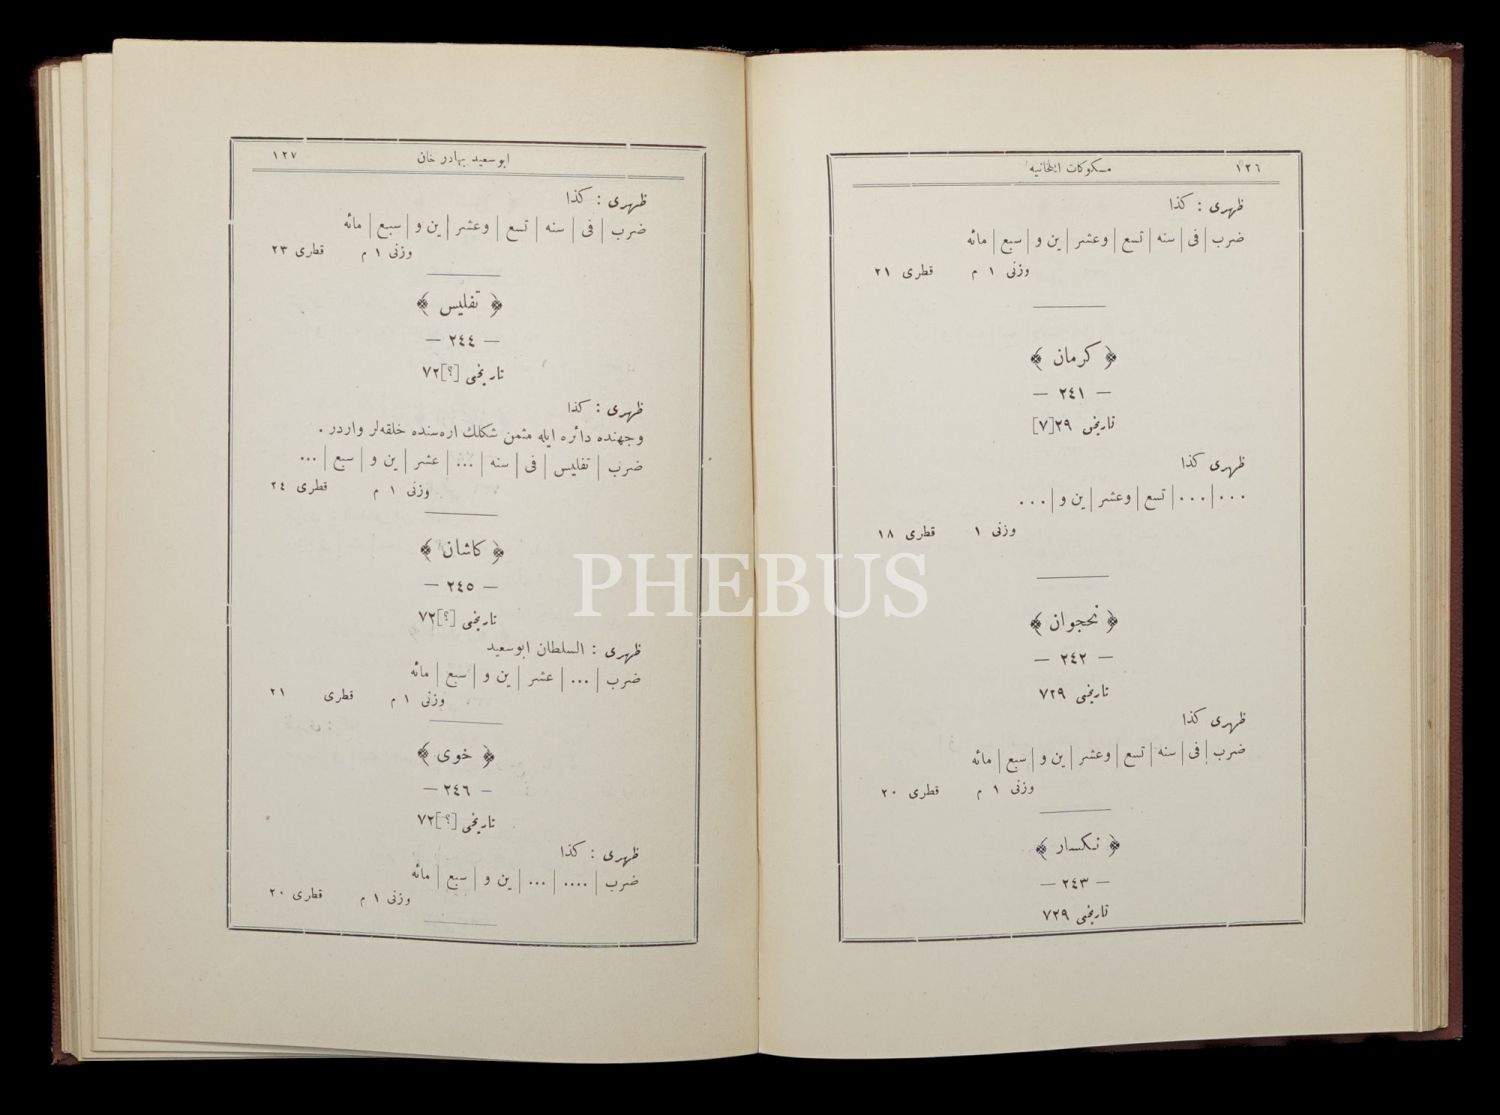 ١٢٦ مسكوكات ايلخانيه
ظهرى : كذا
ضرب | فى | سنه | تسع | وعشر | ين و | سبع | مائه
وزنى ١ م قطرى ٢١
﴿ كرمان ﴾
— ٢٤١ —
تاريخى ٢٩[٧]
ظهرى كذا
... | ... | تسع | وعشر | ين و | ...
وزنى ١ قطرى ١٨
﴿ نخجوان ﴾
— ٢٤٢ —
تاريخى ٧٢٩
ظهرى كذا
ضرب | فى | سنه | تسع | وعشر | ين و | سبع | مائه
وزنى ١ م قطرى ٢٠
﴿ نكسار ﴾
— ٢٤٣ —
تاريخى ٧٢٩
ابوسعيد بهادر خان ١٢٧
ظهرى : كذا
ضرب | فى | سنه | تسع | وعشر | ين و | سبع | مائه
وزنى ١ م قطرى ٢٣
﴿ تفليس ﴾
— ٢٤٤ —
تاريخى [؟]٧٢
ظهرى : كذا
وجهنده دائره ايله مثمن شكلك اره‌سنده خلقه‌لر واردر .
ضرب | تفليس | فى | سنه | ... | عشر | ين و | سبع | ...
وزنى ١ م قطرى ٢٤
﴿ كاشان ﴾
— ٢٤٥ —
تاريخى [؟]٧٢
ظهرى : السلطان ابوسعيد
ضرب | ... | عشر | ين و | سبع | مائه
وزنى ١ م قطرى ٢١
﴿ خوى ﴾
— ٢٤٦ —
تاريخى [؟]٧٢
ظهرى : كذا
ضرب | .... | ... | ين و | سبع | مائه
وزنى ١ م قطرى ٢٠
PHEBUS